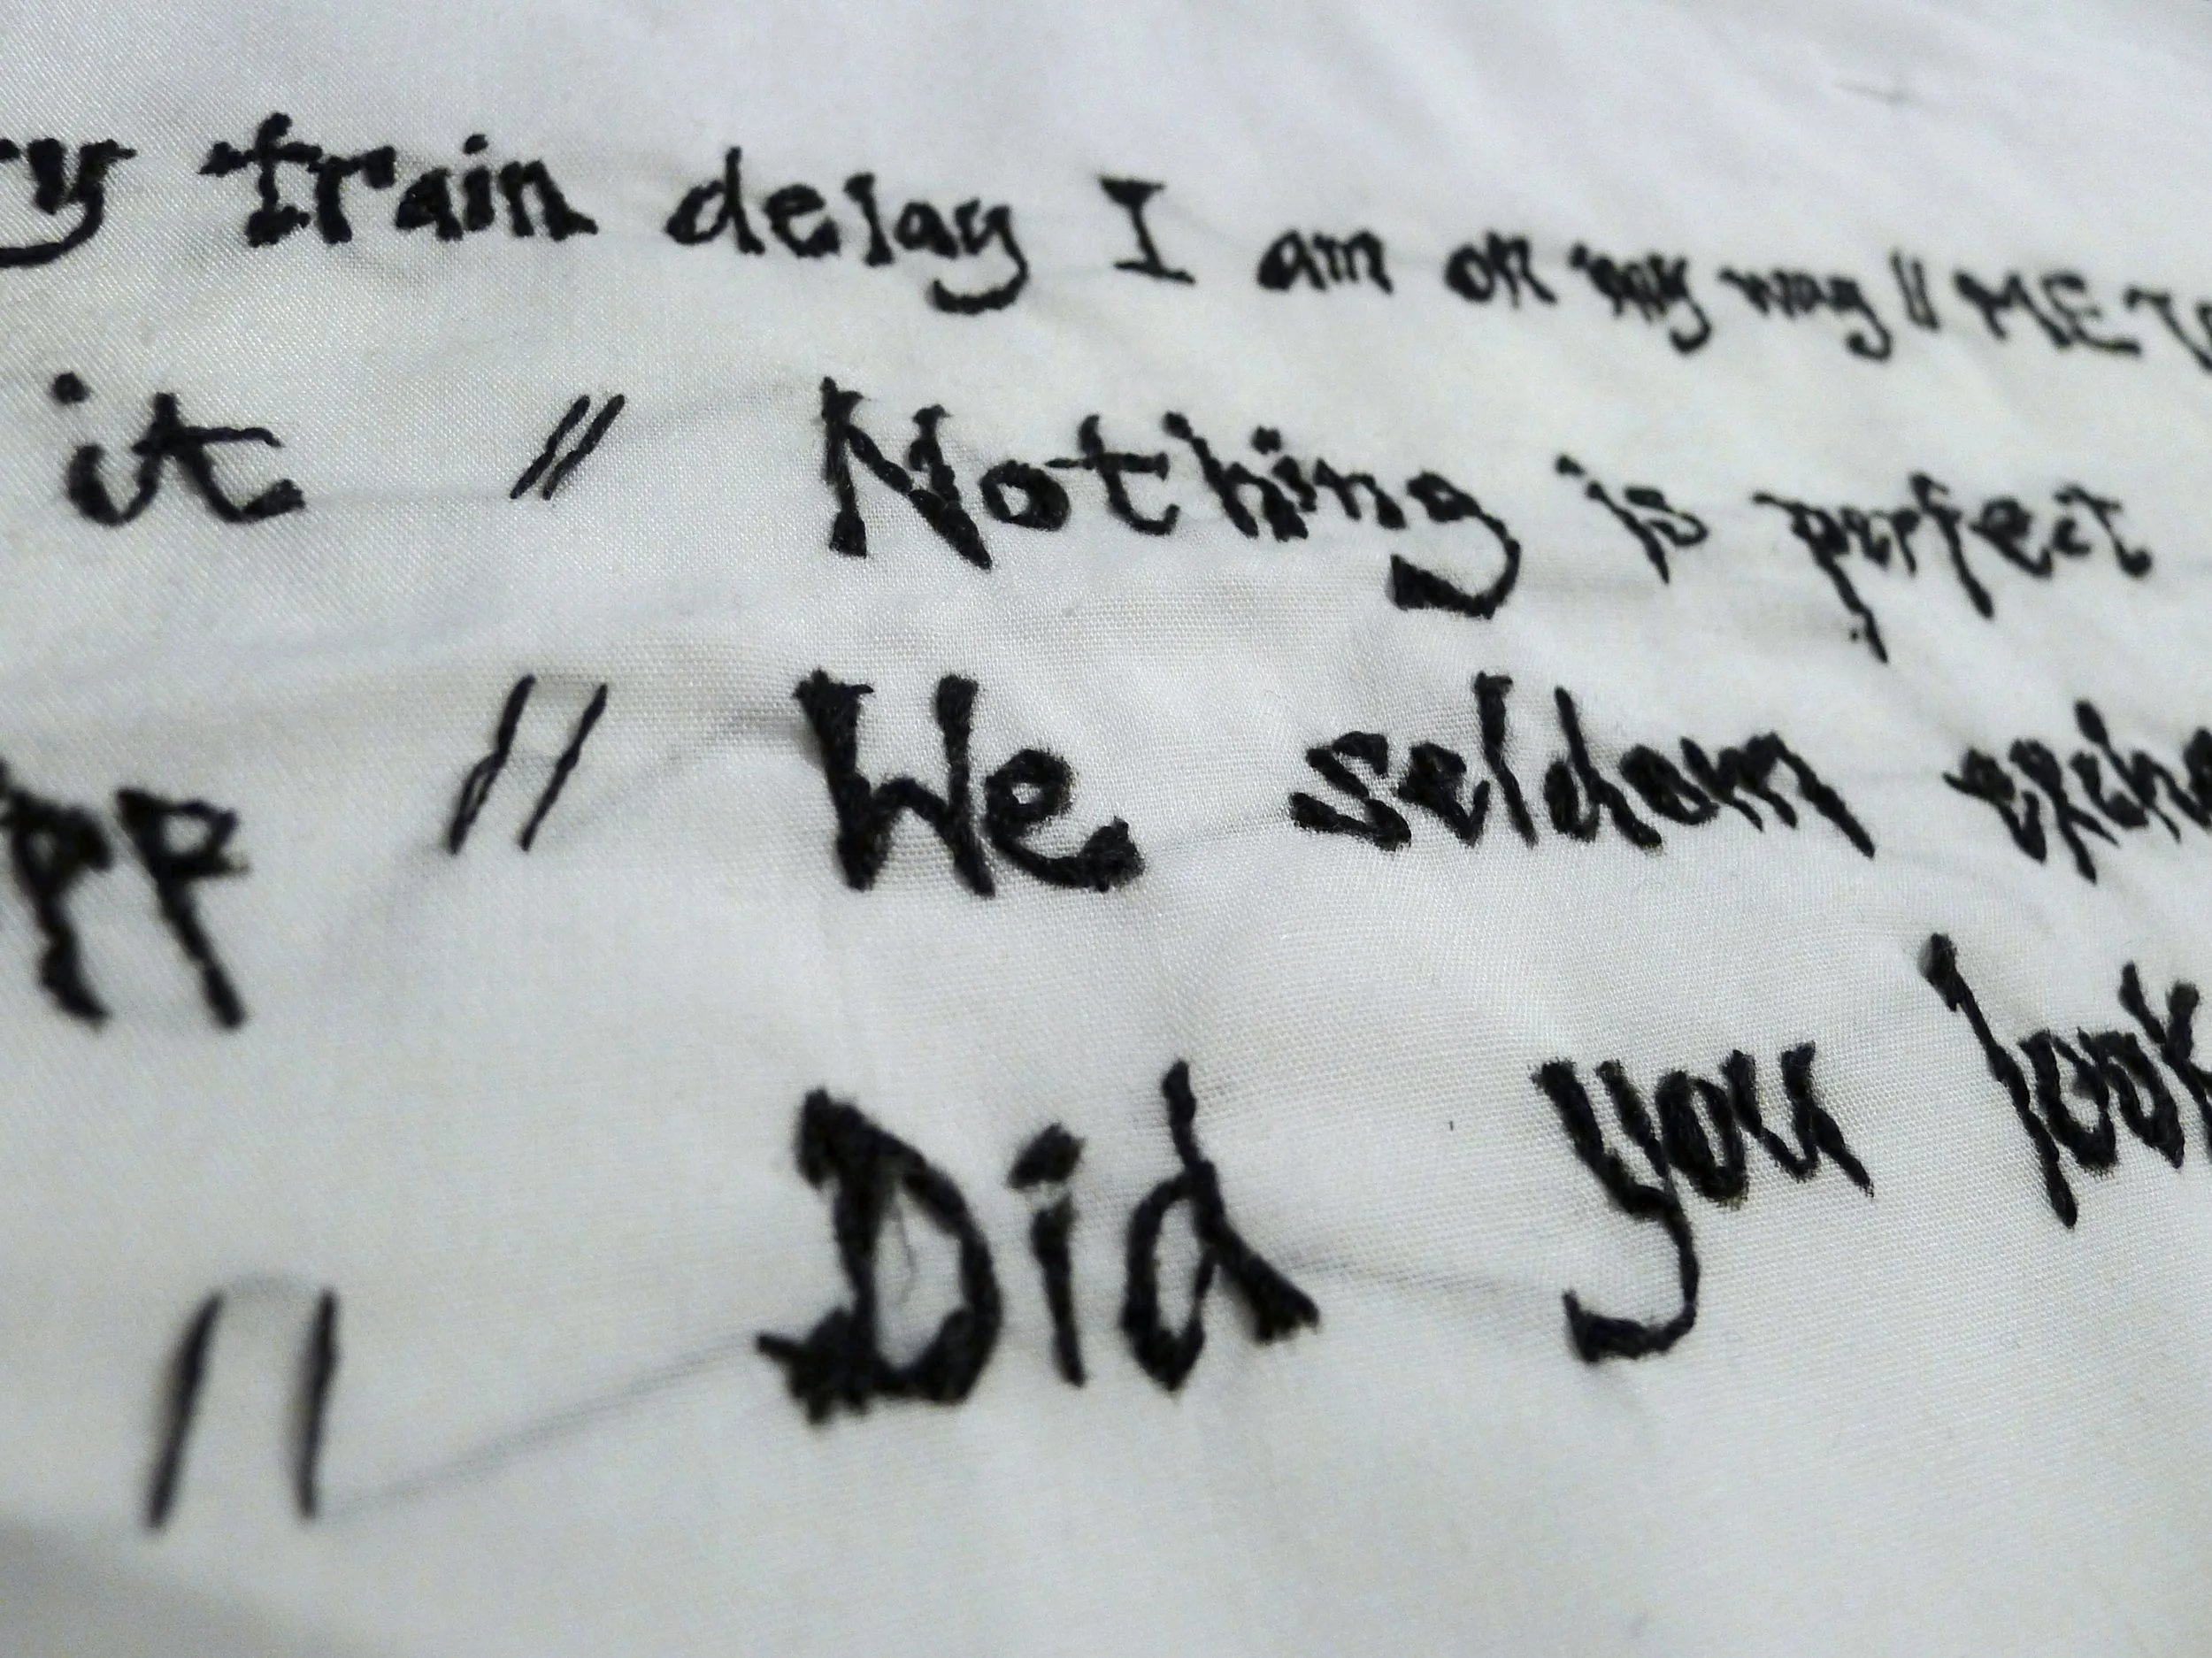 train delay I am on my way // ME
it // Nothing is perfect
// We seldom
// Did you look